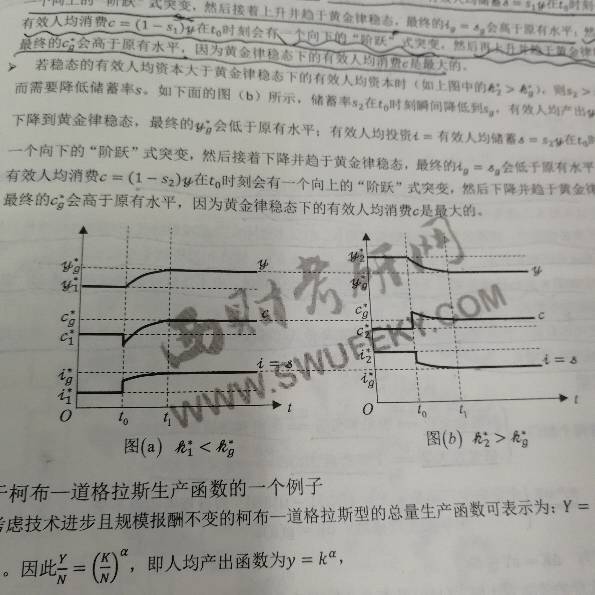 一个向上的“阶跃”式突变，然后接着上升并趋于黄金律稳态，最终的i_g = s_g会高于原有水平，然
有效人均消费c = (1 − s₁)y在t₀时刻会有一个向下的“阶跃”式突变，然后再上升并趋于黄金律
最终的c_g*会高于原有水平，因为黄金律稳态下的有效人均消费c是最大的。
➢ 若稳态的有效人均资本大于黄金律稳态下的有效人均资本时（如上图中的k₂* > k_g*），则s₂ >
而需要降低储蓄率s。如下面的图（b）所示，储蓄率s₂在t₀时刻瞬间降低到s_g，有效人均产出y
下降到黄金律稳态，最终的y_g*会低于原有水平；有效人均投资i = 有效人均储蓄s = s₂y在t₀时
一个向下的“阶跃”式突变，然后接着下降并趋于黄金律稳态，最终的i_g = s_g会低于原有水平
有效人均消费c = (1 − s₂)y在t₀时刻会有一个向上的“阶跃”式突变，然后下降并趋于黄金律
最终的c_g*会高于原有水平，因为黄金律稳态下的有效人均消费c是最大的。
y_g*
y₁*
y
c_g*
c₁*
c
i_g*
i₁*
i = s
O
t₀
t₁
t
图(a) k₁* < k_g*
y₂*
y_g*
y
c_g*
c₂*
c
i₂*
i_g*
i = s
O
t₀
t₁
t
图(b) k₂* > k_g*
西财考研网
WWW.SWUFEKY.COM
柯布—道格拉斯生产函数的一个例子
考虑技术进步且规模报酬不变的柯布—道格拉斯型的总量生产函数可表示为：Y =
。因此Y/N = (K/N)^α，即人均产出函数为y = k^α，